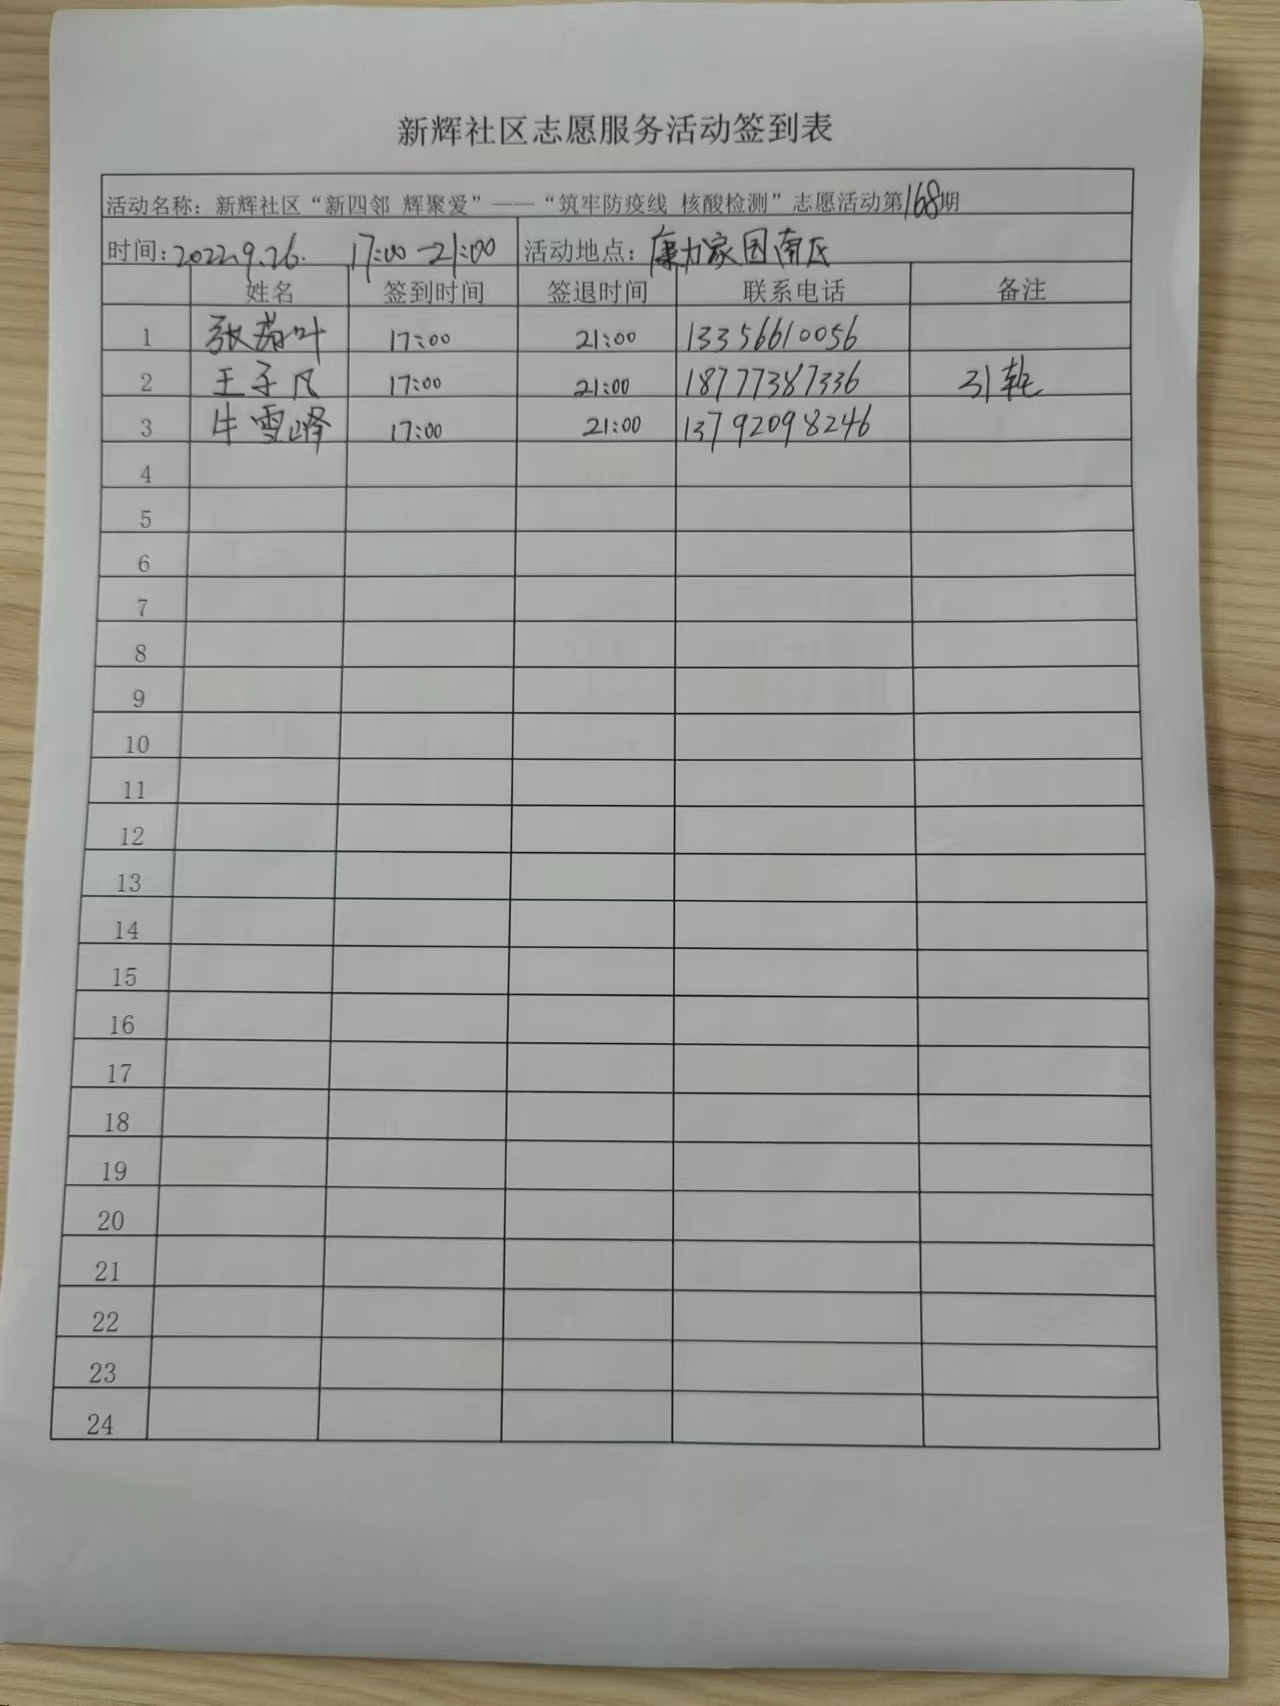 新辉社区志愿服务活动签到表
活动名称：新辉社区“新四邻 辉聚爱”——“筑牢防疫线 核酸检测”志愿活动第168期
时间：2022.9.26. 17:00-21:00 活动地点：康力家园南区
姓名 签到时间 签退时间 联系电话 备注
1 张荷叶 17:00 21:00 13356610056
2 王子凡 17:00 21:00 18777387336
3 牛雪峰 17:00 21:00 13792098246
4
5
6
7
8
9
10
11
12
13
14
15
16
17
18
19
20
21
22
23
24